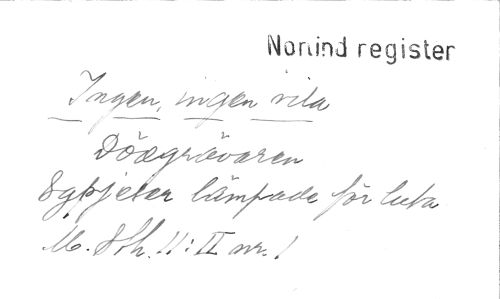 Nomind register
Ingen, ingen vila
Dödgrävaren
8 pjeser lämpade för luta
M. Sch. 11:II nr. 1